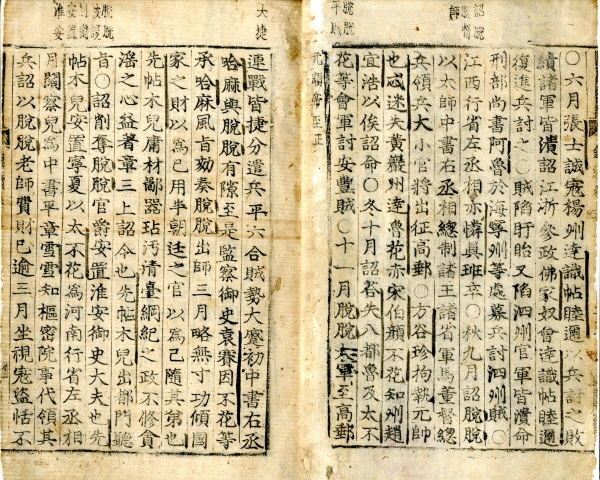 詔脫
脫督
師
脫脫
平賊
〇六月張士誠寇楊州達識帖睦邇以兵討之敗
績諸軍皆潰詔江浙參政佛家奴會達識帖睦邇
復進兵討之〇賊陷盱眙又陷泗州官軍皆潰命
刑部尚書阿魯於海寧州等處募兵討泗州賊〇
江西行省左丞相亦憐真班卒〇秋九月詔脫脫
以太師中書右丞相總制諸王諸省軍馬董督總
兵領兵大小官將出征高郵〇方谷珍拘執元帥
也忒迷失黃巖州達魯花赤宋伯顏不花知州趙
宜浩以俟詔命〇冬十月詔答失八都魯及太不
花等會軍討安豊賊〇十一月脫脫大軍至高郵
元順帝至正
大捷
脫脫
安置
淮安
連戰皆捷分遣兵平六合賊勢大蹙初中書右丞
哈麻與脫脫有隙至是監察御史袁賽因不花等
承哈麻風旨劾奏脫脫出師三月略無寸功傾國
家之財以為己用半朝廷之官以為己隨其弟也
先帖木兒庸材鄙器玷污清臺綱紀之政不修貪
淫之心益著章三上詔令也先帖木兒出都門聽
旨〇詔削奪脫脫官爵安置淮安御史大夫也先
帖木兒安置寧夏以太不花為河南行省左丞相
月闊察兒為中書平章雪雪知樞密院事代領其
兵詔以脫脫老師費財已逾三月坐視寇盜恬不